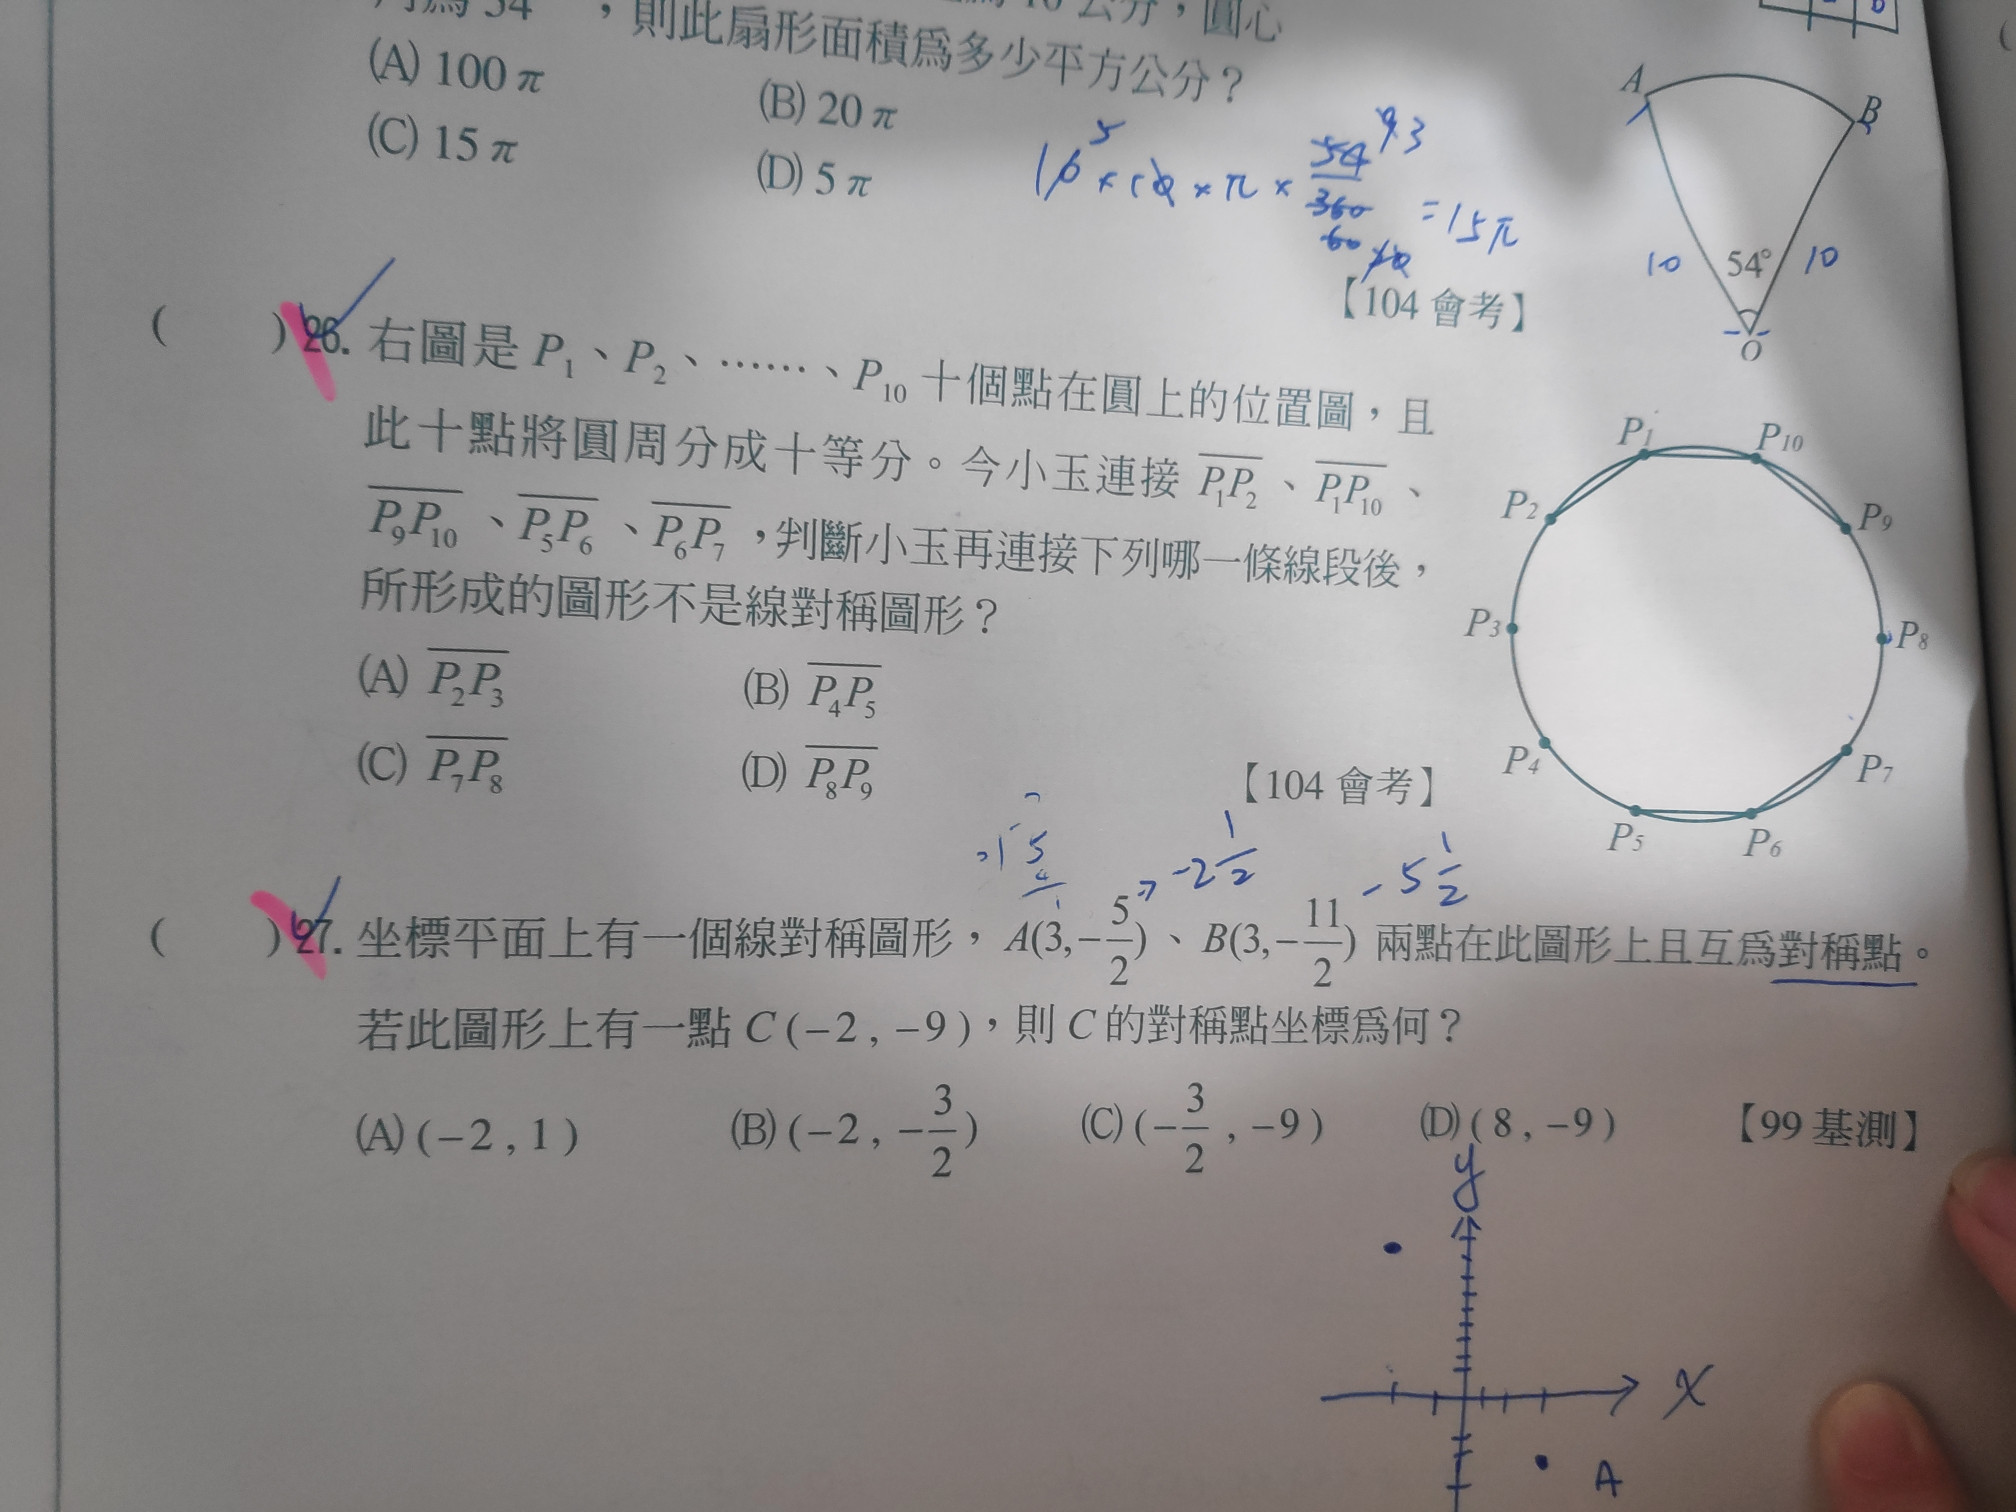 為 54 ,則此扇形面積為多少平方公分?
10 公分,圓心
(A) 100 π
(B) 20 π
(C) 15 π
(D) 5 π
= 15π
A
B
10
54°
10
O
【104 會考】
( ) 26. 右圖是 P₁、P₂、……、P₁₀ 十個點在圓上的位置圖,且
此十點將圓周分成十等分。今小玉連接 P₁P₂、P₁P₁₀、
P₉P₁₀、P₅P₆、P₆P₇,判斷小玉再連接下列哪一條線段後,
所形成的圖形不是線對稱圖形?
(A) P₂P₃
(B) P₄P₅
(C) P₇P₈
(D) P₈P₉
【104 會考】
P₁
P₁₀
P₂
P₉
P₃
P₈
P₄
P₇
P₅
P₆
-2 1/2
-5 1/2
( ) 27. 坐標平面上有一個線對稱圖形,A(3,-5/2)、B(3,-11/2) 兩點在此圖形上且互為對稱點。
若此圖形上有一點 C (-2 , -9),則 C 的對稱點坐標為何?
(A) (-2 , 1) (B) (-2 , -3/2) (C) (-3/2 , -9) (D) (8 , -9) 【99 基測】
y
x
A